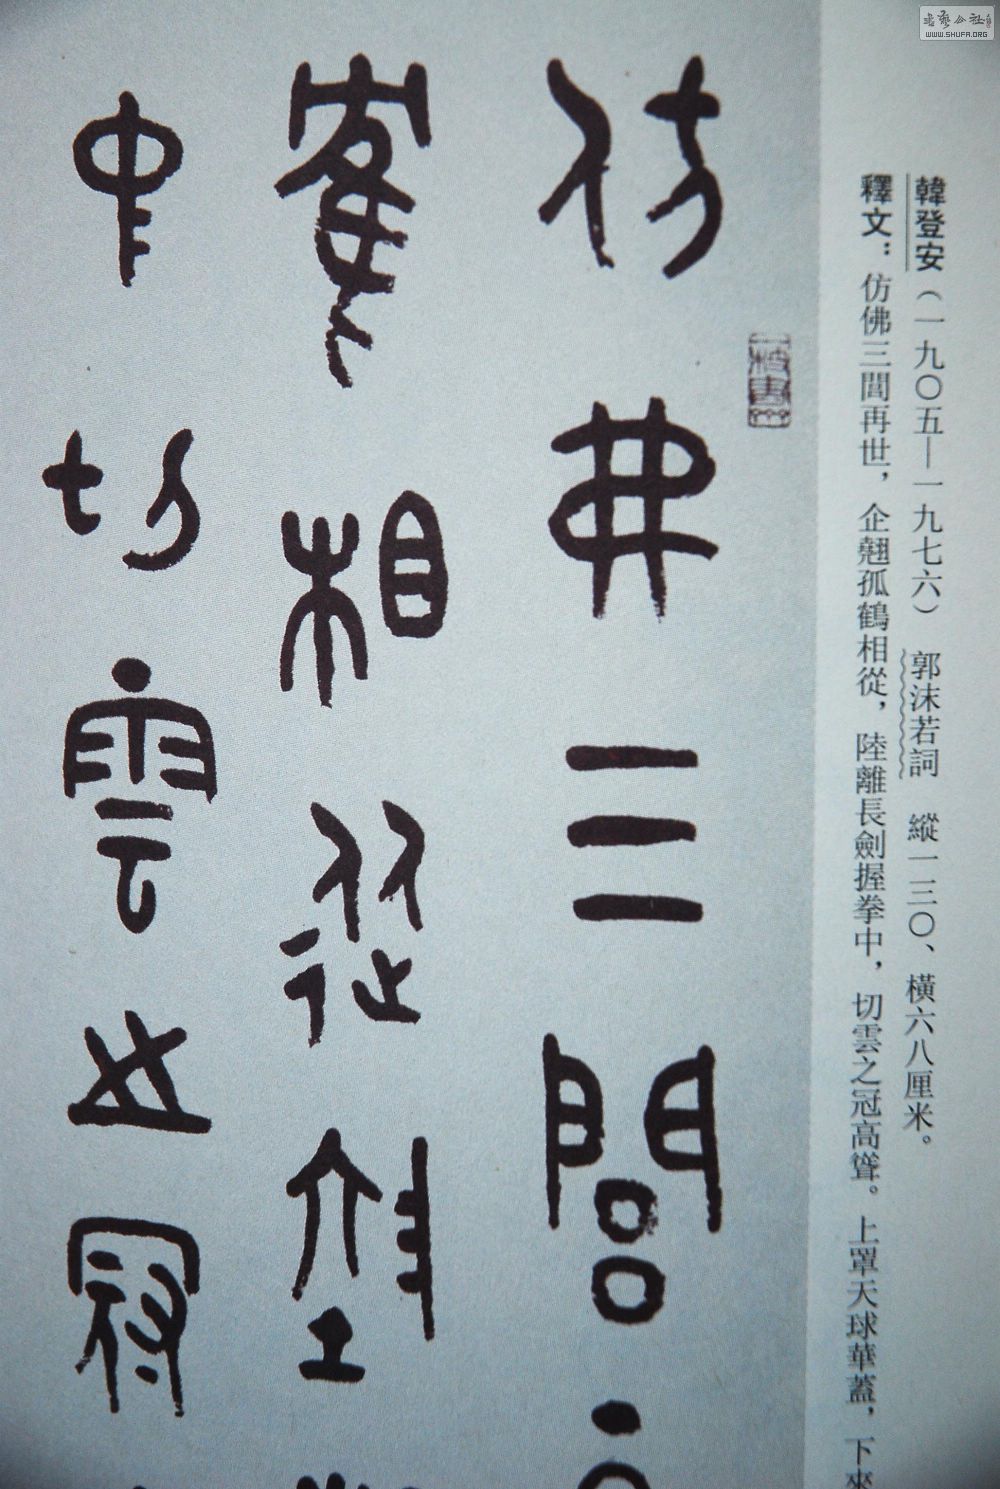 書藝公社
WWW.SHUFA.ORG
韓登安（一九〇五—一九七六）　郭沫若詞　縱一三〇、橫六八厘米。
釋文：仿佛三閭再世，企翹孤鶴相從，陸離長劍握拳中，切雲之冠高聳。上罩天球華蓋，下來
仿弗三閭
隺相從陸
中切雲之冠